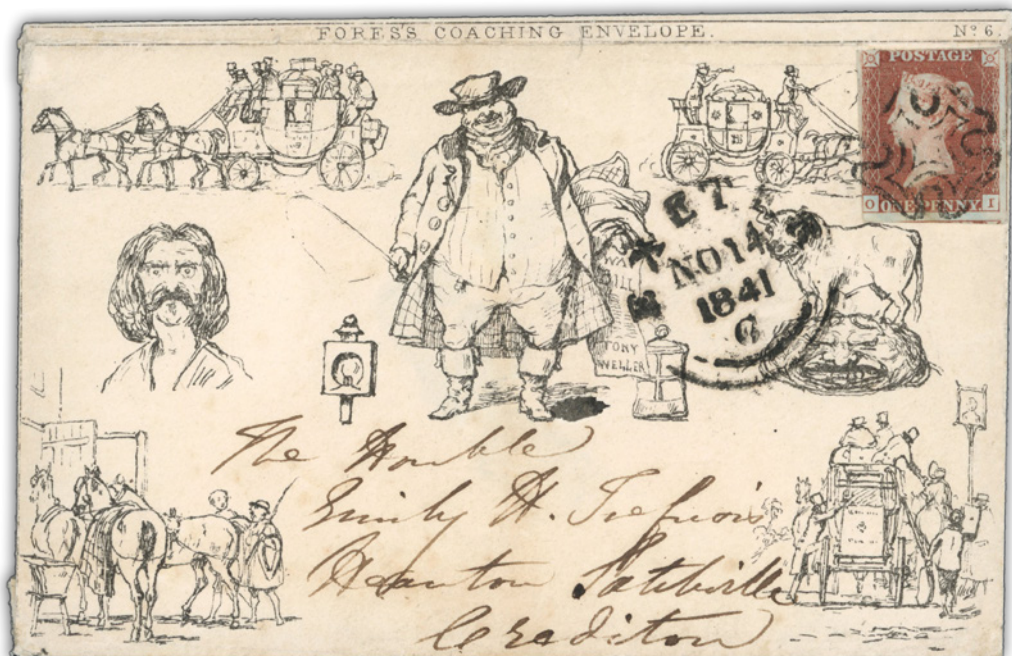 FORES'S COACHING ENVELOPE.
Nº 6.
POSTAGE
O ONE PENNY I
NO 14
1841
C
TONY
WELLER
The Honble
Emily H. Trefusis
Heanton Satchville
Crediton